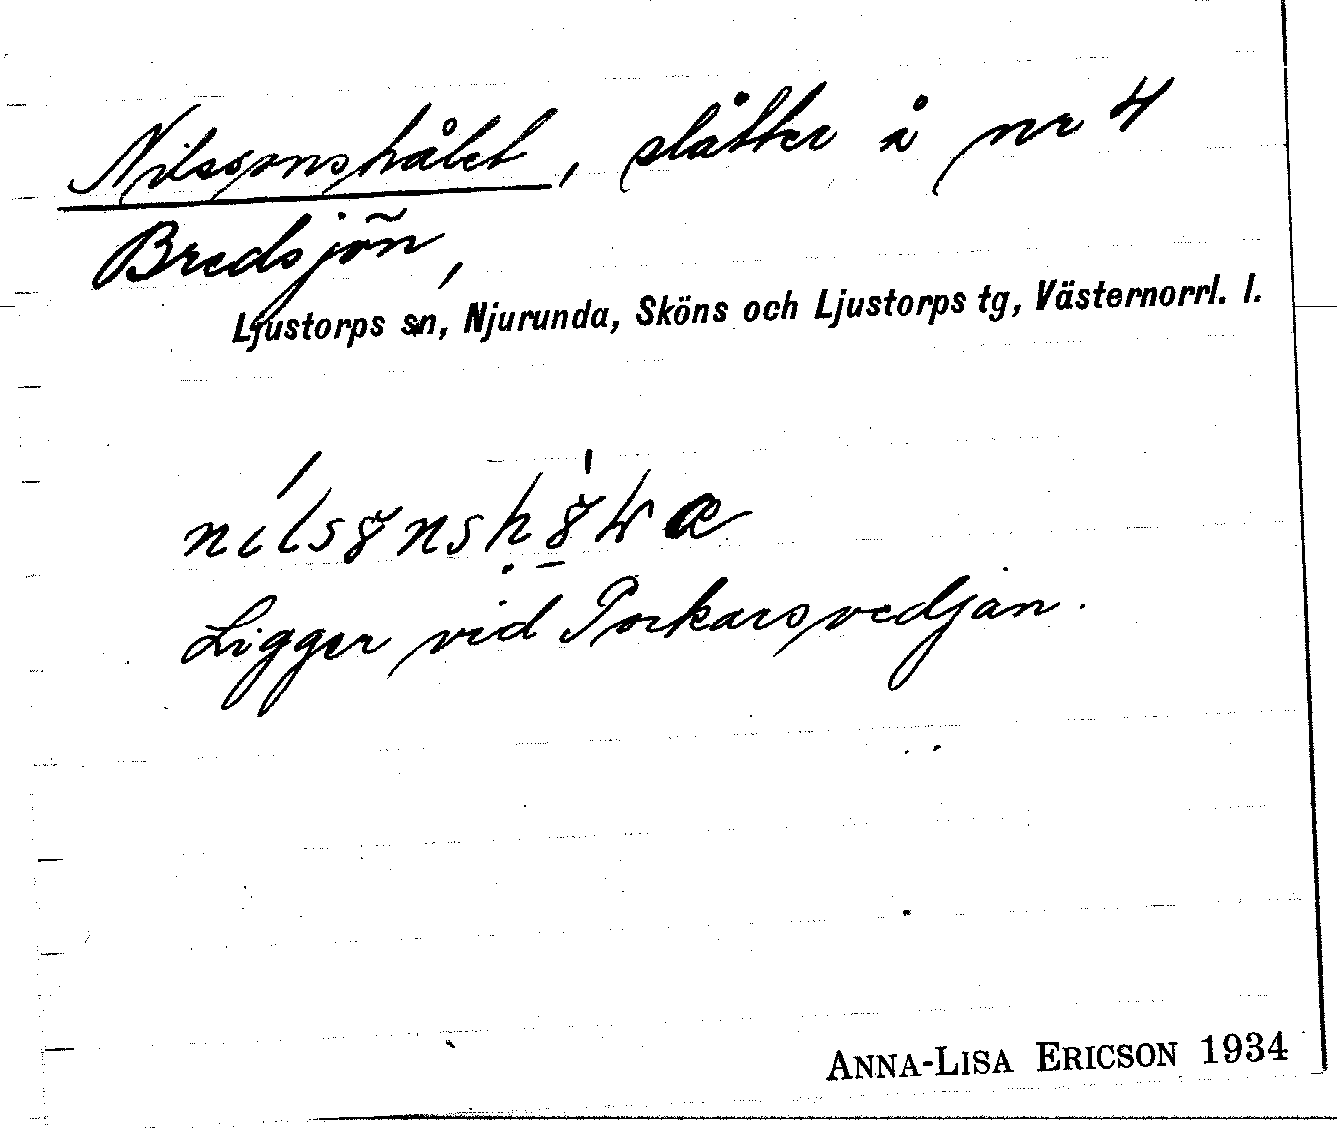 Nilssonshålet, slåtter å nr 4
Bredsjön,
Ljustorps sn, Njurunda, Sköns och Ljustorps tg, Västernorrl. l.
Ligger vid Porkarsvedjan.
ANNA-LISA ERICSON 1934